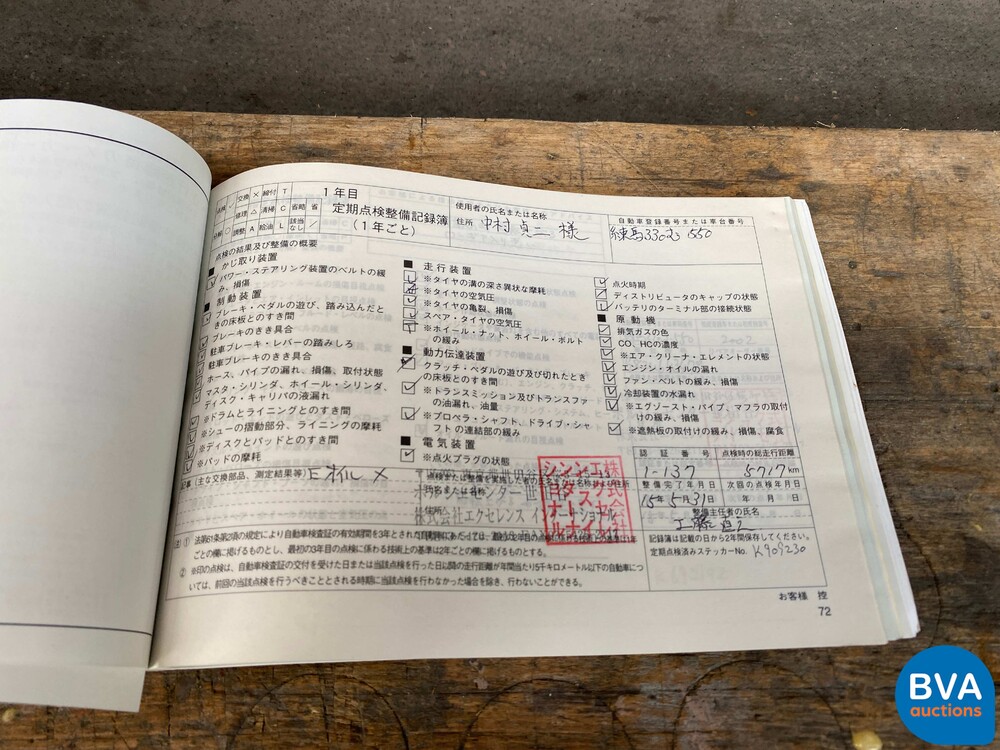 交換 × 給付 T
修理 △ 清掃 C 省略 省
調整 A 給油 L 該当なし /
1年目
定期点検整備記録簿
(1年ごと)
使用者の氏名または名称
住所 中村 貞二 様
自動車登録番号または車台番号
練馬330む550
点検の結果及び整備の概要
■ かじ取り装置
パワー・ステアリング装置のベルトの緩
み、損傷
■ 制動装置
ブレーキ・ペダルの遊び、踏み込んだと
きの床板とのすき間
ブレーキのきき具合
駐車ブレーキ・レバーの踏みしろ
駐車ブレーキのきき具合
ホース、パイプの漏れ、損傷、取付状態
マスタ・シリンダ、ホイール・シリンダ、
ディスク・キャリパの液漏れ
※ドラムとライニングとのすき間
※シューの摺動部分、ライニングの摩耗
※ディスクとパッドとのすき間
※パッドの摩耗
■ 走行装置
※タイヤの溝の深さ異状な摩耗
※タイヤの空気圧
※タイヤの亀裂、損傷
スペア・タイヤの空気圧
※ホイール・ナット、ホイール・ボルト
の緩み
■ 動力伝達装置
クラッチ・ペダルの遊び及び切れたとき
の床板とのすき間
※トランスミッション及びトランスファ
の油漏れ、油量
※プロペラ・シャフト、ドライブ・シャ
フトの連結部の緩み
■ 電気装置
※点火プラグの状態
点火時期
ディストリビュータのキャップの状態
バッテリのターミナル部の接続状態
■ 原動機
排気ガスの色
CO、HCの濃度
※エア・クリーナ・エレメントの状態
エンジン・オイルの漏れ
ファン・ベルトの緩み、損傷
冷却装置の水漏れ
※エグゾースト・パイプ、マフラの取付
けの緩み、損傷
※遮熱板の取付けの緩み、損傷、腐食
記事 (主な交換部品、測定結果等) Eオイル ×
点検または整備を実施した者の氏名または名称及び住所
氏名または名称
住所
株式会社エクセレンス インターナショナル
認証番号 点検時の総走行距離
1-137 5717 km
整備完了年月日 次回の点検年月日
15年5月31日 年 月 日
整備主任者の氏名
記録簿は記載の日から2年間保存してください。
定期点検済みステッカーNo. K909230
注) ① 法第61条第2項の規定により自動車検査証の有効期間を3年とされた自動車にあっては、
ごとの欄に掲げるものとし、最初の3年目の点検に係わる技術上の基準は2年ごとの欄に掲げるものとする。
② ※印の点検は、自動車検査証の交付を受けた日または当該点検を行った日以降の走行距離が年間当たり5千キロメートル以下の自動車につ
いては、前回の当該点検を行うべきこととされる時期に当該点検を行わなかった場合を除き、行わないことができる。
お客様 控
72
BVA
auctions